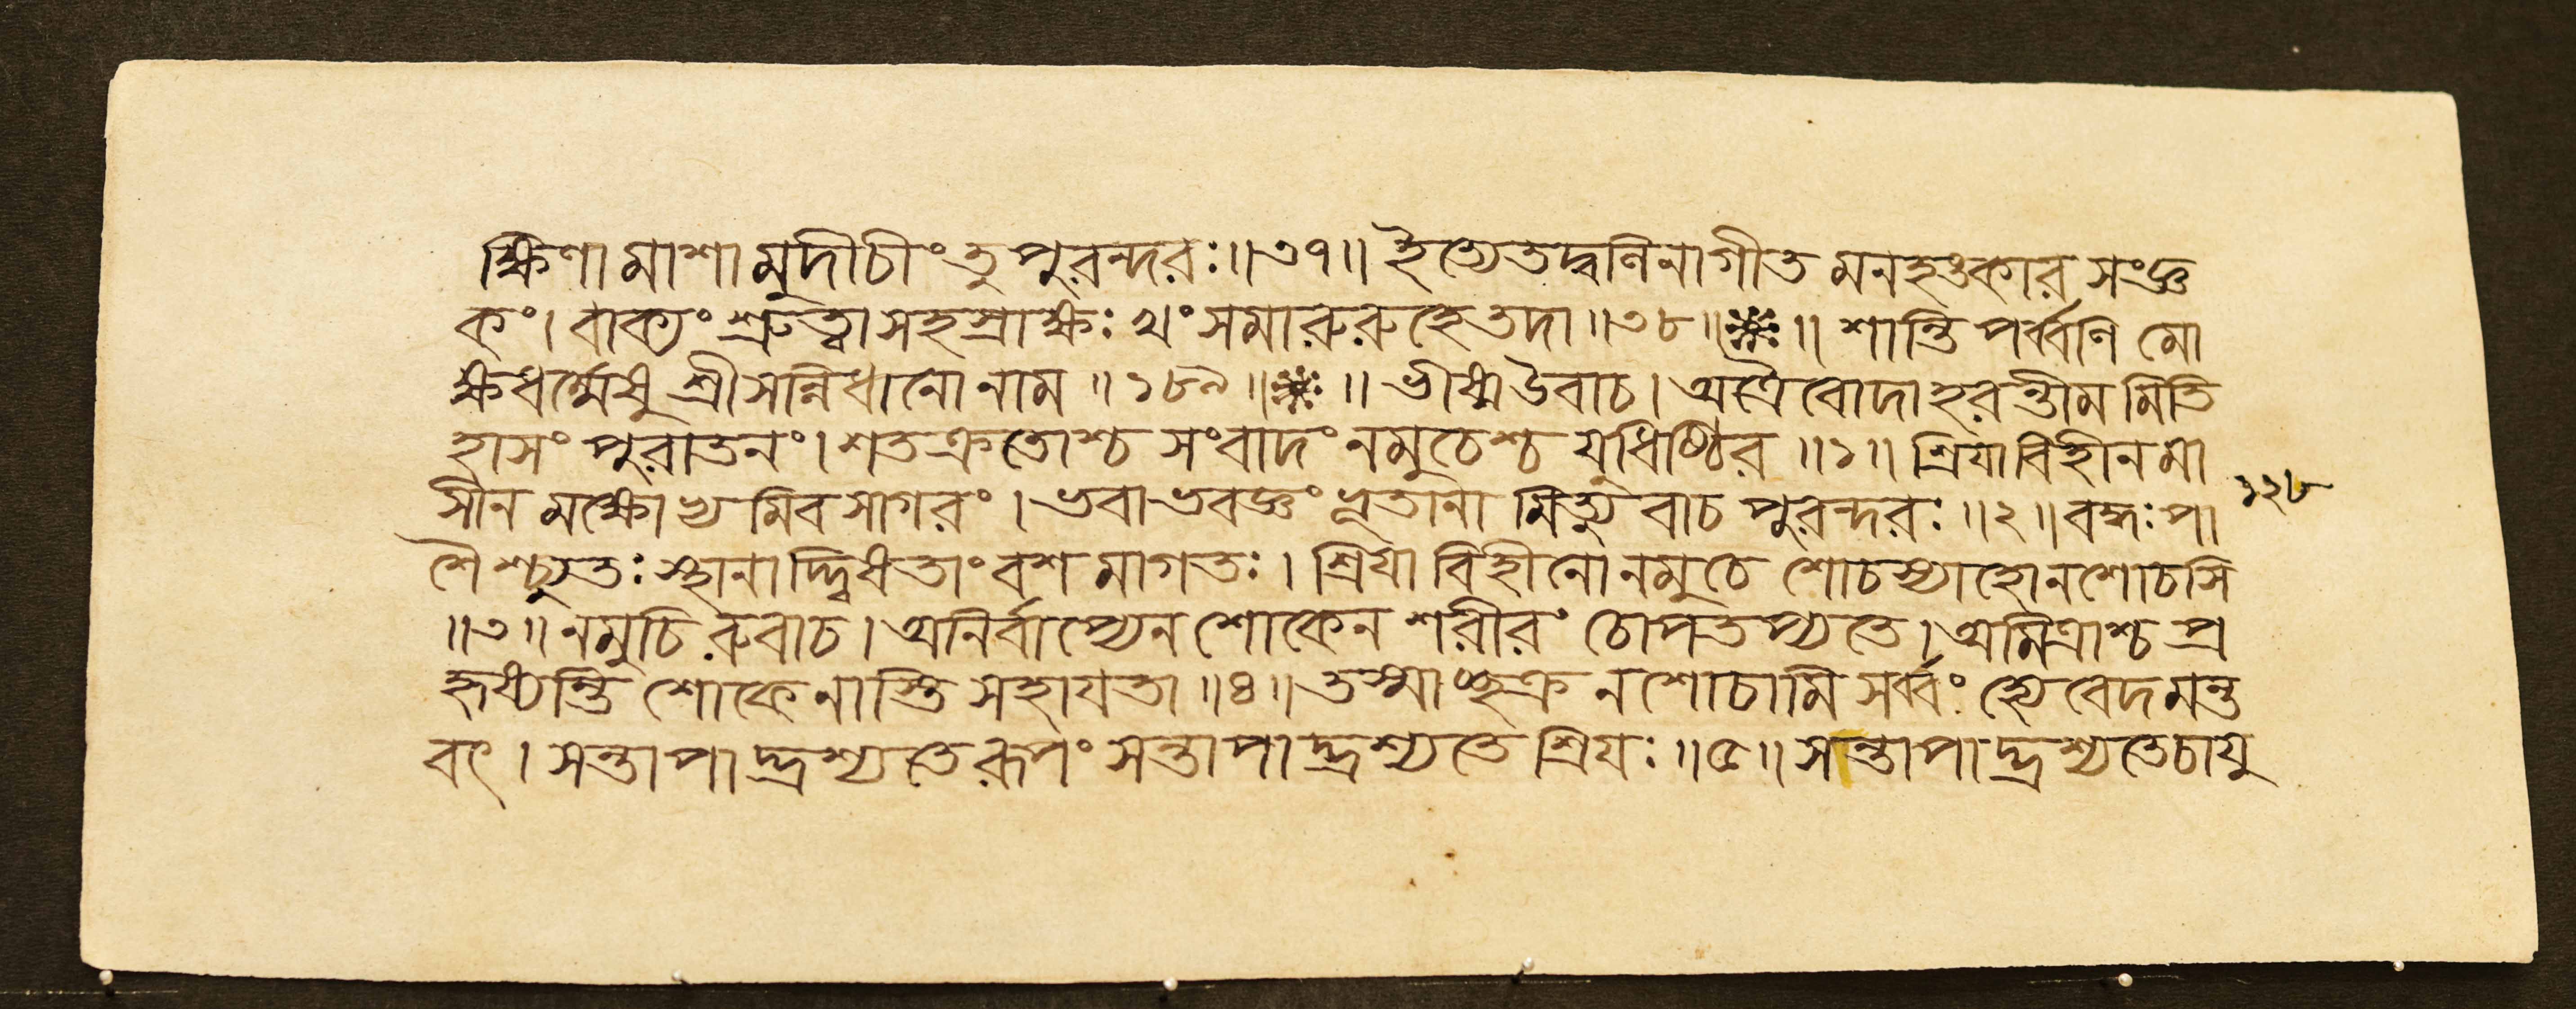 ক্ষিণামাশামুদীচীংতুপুরন্দরঃ॥৩৭॥ইত্যেতদ্বলিনাগীতমনহঙকারসংজ্ঞ
কং।বাক্যংশ্রুত্বাসহস্রাক্ষঃখংসমারুরুহেতদা॥৩৮॥⁕ঃ॥শান্তিপর্ব্বণিমো
ক্ষধর্ম্মেষুশ্রীসন্নিধানোনাম॥১৮৯॥⁕ঃ॥ভীষ্মউবাচ।অত্রৈবোদাহরন্তীমমিতি
হাসংপুরাতনং।শতক্রতোশ্চসংবাদংনমুচেশ্চযুধিষ্ঠির॥১॥শ্রিয়াবিহীনমা
সীনমক্ষোভ্যমিবসাগরং।ভবাভবজ্ঞংভূতানামিত্যুবাচপুরন্দরঃ॥২॥বদ্ধঃপা
শৈশ্চ্যুতঃস্থানাদ্দ্বিষতাংবশমাগতঃ।শ্রিয়াবিহীনোনমুচেশোচস্যাহোনশোচসি
॥৩॥নমুচিরুবাচ।অনির্বাপ্যেনশোকেনশরীরংচোপতপ্যতে।অমিত্রাশ্চপ্র
হৃষ্যন্তিশোকেনাস্তিসহায়তা॥৪॥তস্মাচ্ছক্রনশোচামিসর্ব্বংহ্যেবেদমন্ত
বৎ।সন্তাপাদ্ভ্রশ্যতেরূপংসন্তাপাদ্ভ্রশ্যতেশ্রিয়ঃ॥৫॥সন্তাপাদ্ভ্রশ্যতেচায়ু
১২৮